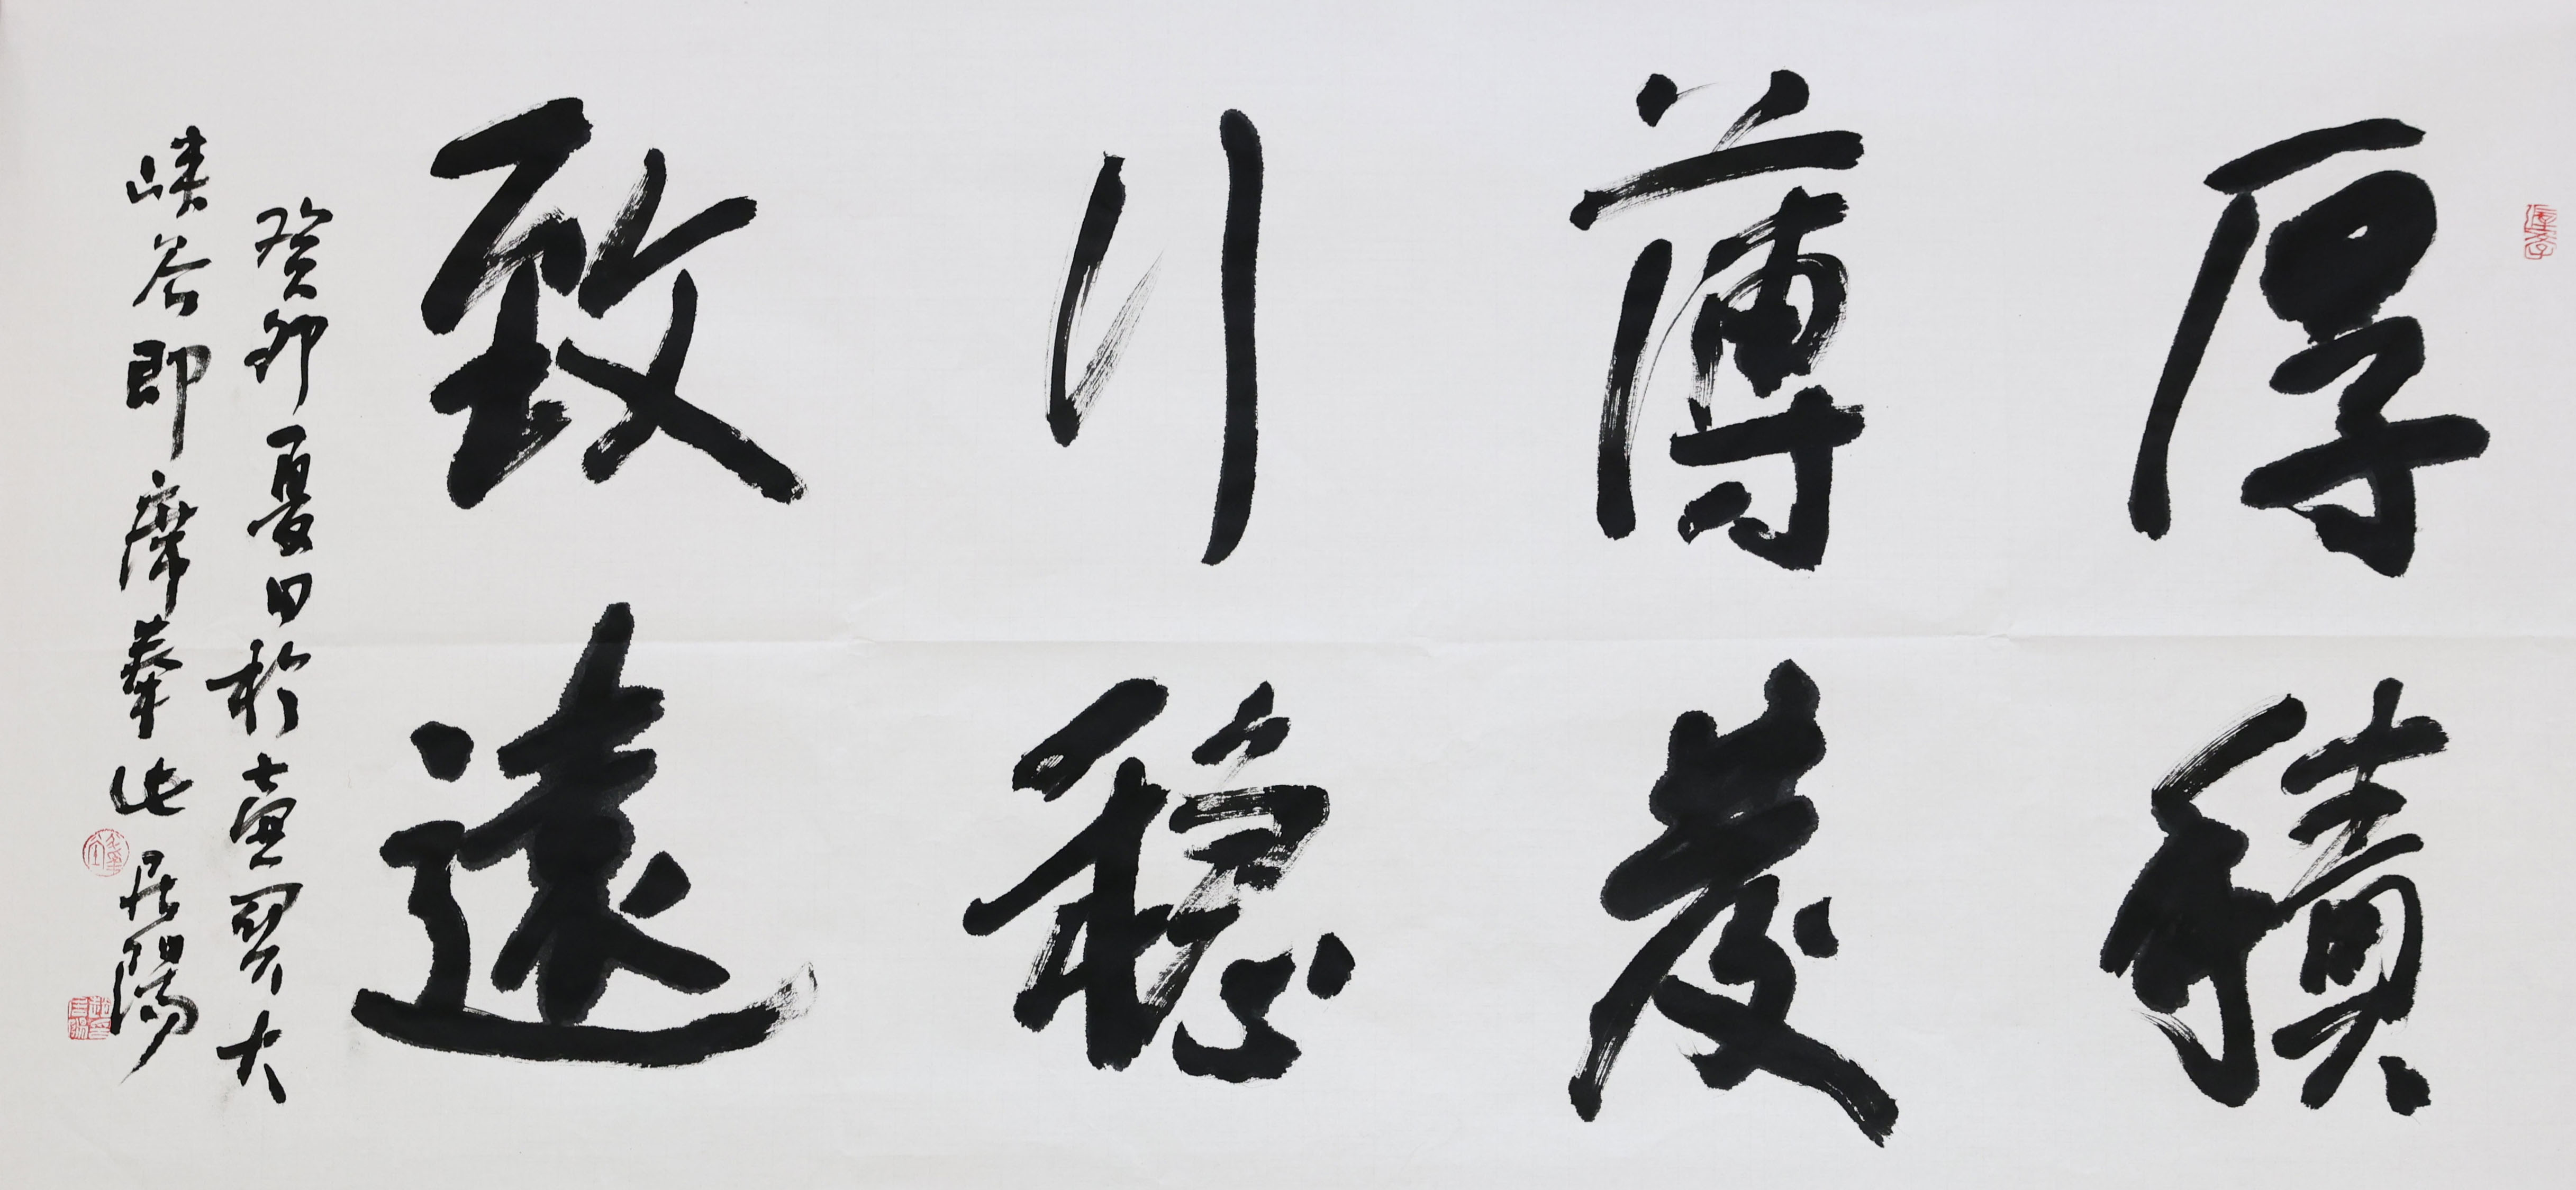 厚積
薄發
行穩
致遠
癸卯夏日於壺關大
峽谷即席此居陽